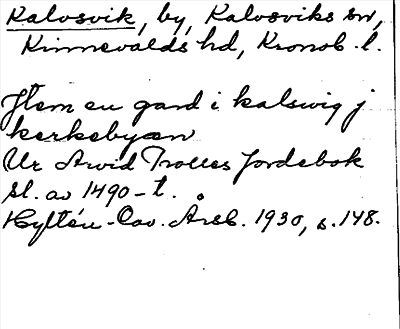 Kalvsvik, by, Kalvsviks sn,
Kinnevalds hd, Kronob. l.
Jtem en gard i kalswig j
kerkebyæn
Ur Arvid Trolles Jordebok
sl. av 1490-t.
Hyltén-Cav. Årsb. 1930, s. 148.